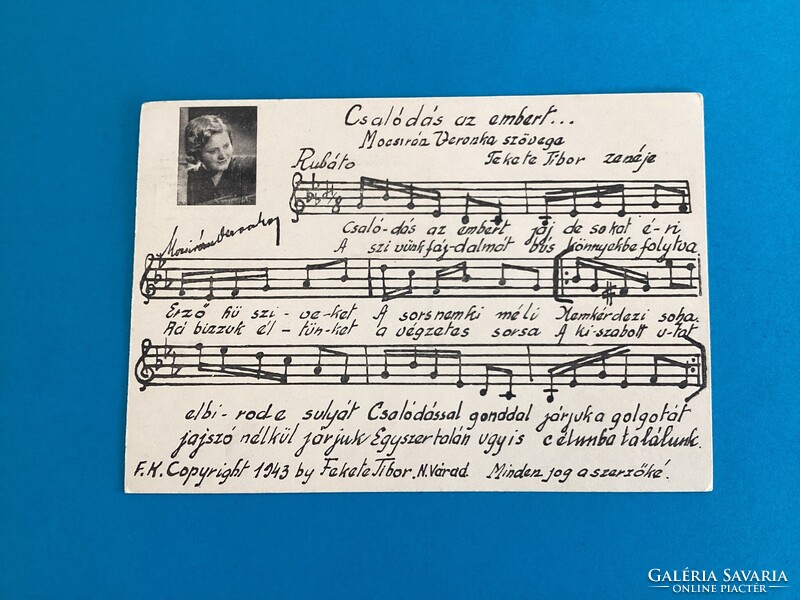 Csalódás az embert...
Mocsirán Veronka szövega
Fekete Tibor zenéje
Rubáto
Csaló-dás az embert jaj de sokat é-ri
A szi vünk fáj-dalmát bús könnyekbe folytva
Erző hü szi-ve-ket A sors nem ki méli Nem kérdezi soha
Rá bizzuk él-tün-ket a végzetes sorsa A ki-szabott u-tat
elbi-rod e sulyát Csalódással gonddal járjuk a golgotát
jajszó nélkül járjuk Egyszer talán ugyis célunba találunk.
F.K. Copyright 1943 by Fekete Tibor. N. Várad. Minden jog a szerzőké.
GALÉRIA SAVARIA
ONLINE PIACTÉR